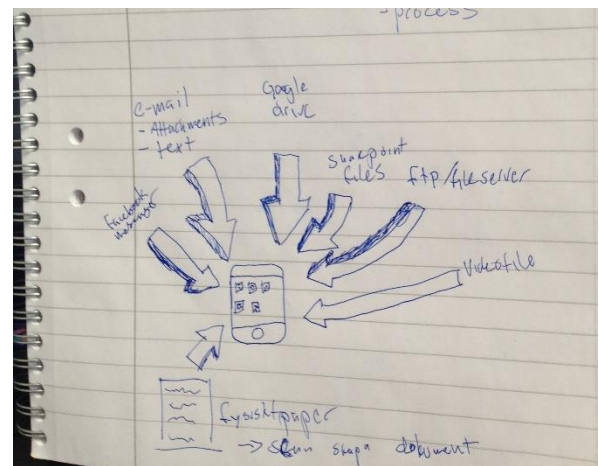 -process
e-mail
- Attachments
- text
Google
drive
Sharepoint
files
ftp/fileserver
Facebook
Videofile
fysisktpaper
-> scan skapa dokument